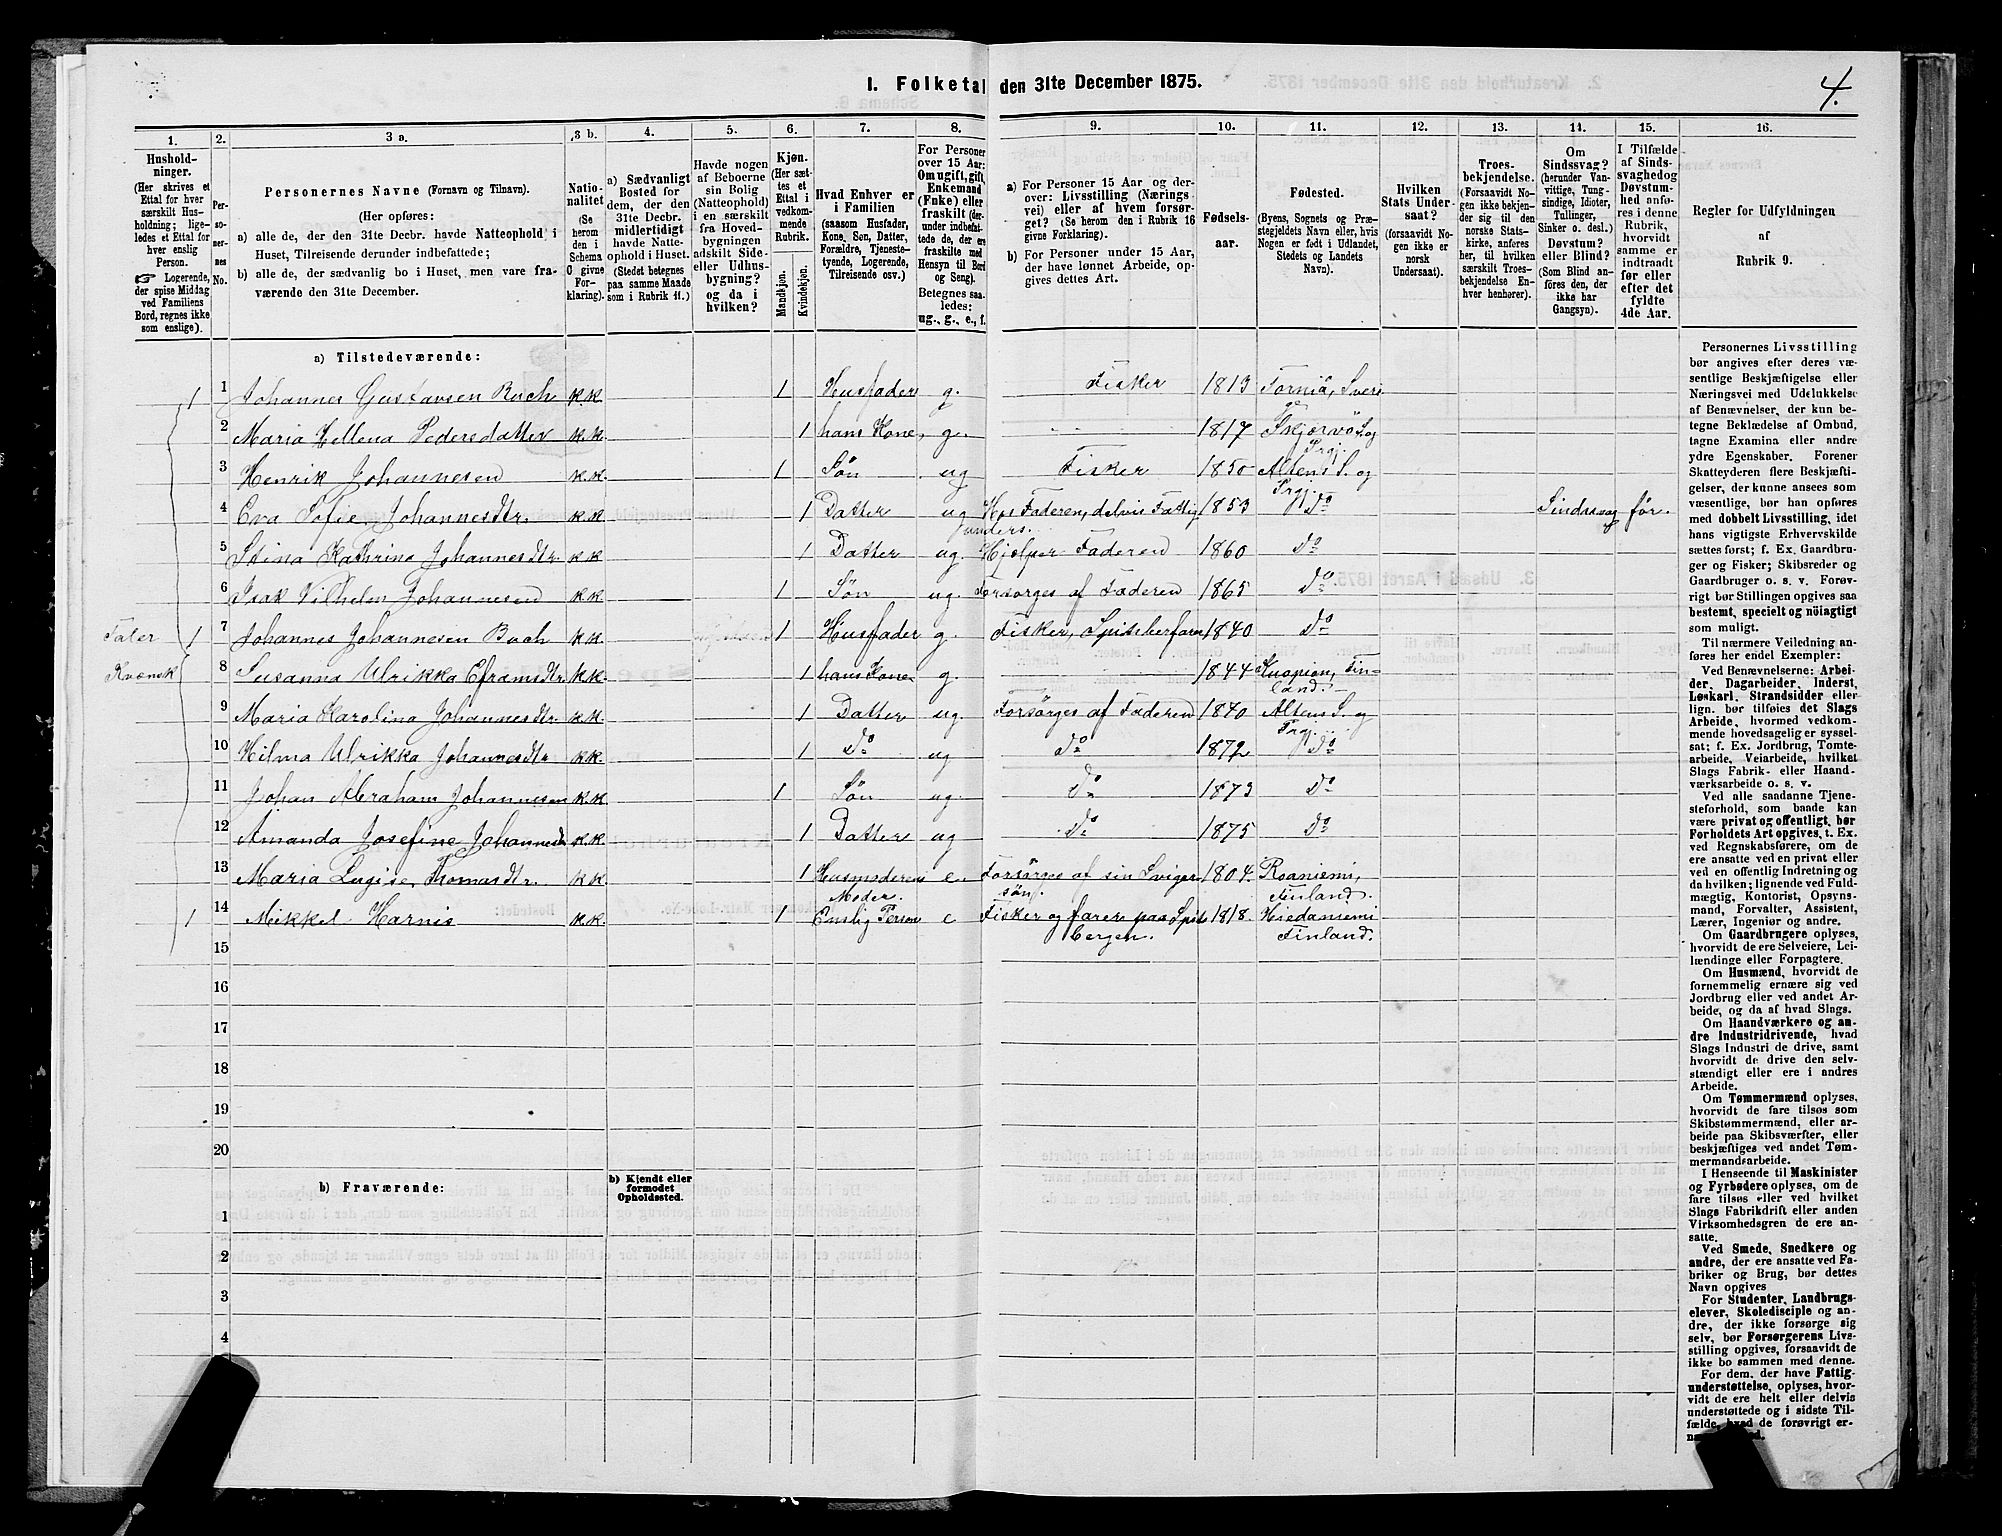 4.
1. Folketal den 31te December 1875.
1. 2. 3 a. 3 b. 4. 5. 6. 7. 8. 9. 10. 11. 12. 13. 14. 15. 16.
Husholdninger.
(Her skrives et Ettal for hver særskilt Husholdning; ligeledes et Ettal for hver enslig Person.
☞ Logerende, der spise Middag ved Familiens Bord, regnes ikke som enslige).
Personernes No.
Personernes Navne (Fornavn og Tilnavn).
(Her opføres:
a) alle de, der den 31te Decbr. havde Natteophold i Huset, Tilreisende derunder indbefattede;
b) alle de, der sædvanlig bo i Huset, men vare fraværende den 31te December.
Nationalitet (Se herom den i Schema O givne Forklaring).
a) Sædvanligt Bosted for dem, der den 31te Decbr. midlertidigt havde Natteophold i Huset. (Stedet betegnes paa samme Maade som i Rubrik 11.)
Havde nogen af Beboerne sin Bolig (Natteophold) i en særskilt fra Hovedbygningen adskilt Side- eller Udhusbygning? og da i hvilken?
Kjøn. (Her sættes et Ettal i vedkommende Rubrik.
Mandkjøn. Kvindekjøn.
Hvad Enhver er i Familien (saasom Husfader, Kone, Søn, Datter, Forældre, Tjenestetyende, Logerende, Tilreisende osv.)
For Personer over 15 Aar: Om ugift, gift, Enkemand (Enke) eller fraskilt (derunder indbefattede de, der ere fraskilte med Hensyn til Bord og Seng). Betegnes saaledes: ug., g., e., f.
a) For Personer 15 Aar og derover: Livsstilling (Næringsvei) eller af hvem forsørget? (Se herom den i Rubrik 16 givne Forklaring).
b) For Personer under 15 Aar, der have lønnet Arbeide, opgives dettes Art.
Fødselsaar.
Fødested.
(Byens, Sognets og Præstegjeldets Navn eller, hvis Nogen er født i Udlandet, Stedets og Landets Navn).
Hvilken Stats Undersaat? (forsaavidt Nogen ikke er norsk Undersaat).
Troesbekjendelse. (Forsaavidt Nogen ikke bekjender sig til den norske Statskirke, anføres her, til hvilken særskilt Troesbekjendelse Enhver henhører).
Om Sindssvag? (herunder Vanvittige, Tungsindige, Idioter, Tullinger, Sinker o. desl.) Døvstum? eller Blind? (Som Blind anføres den, der ikke har Gangsyn).
I Tilfælde af Sindssvaghed og Døvstumhed anføres i denne Rubrik, hvorvidt samme er indtraadt før eller efter det fyldte 4de Aar.
Regler for Udfyldningen
af
Rubrik 9.
a) Tilstedeværende:
1 1 Johannes Gustavsen Bach k.k. 1 Husfader g. Fisker 1813 Torniå, Sverige
2 Maria Hellena Pedersdatter k.k. 1 hans Kone g. 1817 Skjervö S. og Prgj.
3 Henrik Johannesen k.k. 1 Søn ug Fisker 1850 Altens S. og Prgj.
4 Eva Sofie Johannesdtr. k.k. 1 Datter ug Hos Faderen, delvis Fattigunders. 1853 Do Sindssvag før.
5 Stina Kathrina Johannesdtr. k.k 1 Datter ug. Hjelper Faderen 1860 Do
6 Isak Vilhelm Johannesen k.k 1 Søn ug. Forsørges af Faderen 1865 Do
Taler Kvænsk
1 7 Johannes Johannesen Bach k.k. 1 Husfader g. Fisker, Spitsberfarer 1840 Do
8 Susanna Ulrikka Eframsdtr. k.k. 1 hans Kone g. 1844 Kuopion, Finland.
9 Maria Karolina Johannesdtr. k.k. 1 Datter ug. Forsørges af Faderen 1840 Altens S. og Prgj.
10 Hilma Ulrikka Johannesdtr k.k. 1 Do ug Do 1872 Do
11 Johan Abraham Johannesen k.k. 1 Søn ug. Do 1873 Do
12 Amanda Josefine Johannesd k.k. 1 Datter ug Do 1875 Do
13 Maria Lugise Thomasdtr. k.k. 1 Husmoderens Moder. e. Forsørges af sin Svigersøn. 1804. Roaniemi, Finland.
1 14 Mikkel Harnis k.k. 1 Enslig Person e Fisker og farer paa Spitsbergen. 1818. Hiedaniemi Finland.
15
16
17
18
19
20
b) Fraværende:
b) Kjendt eller formodet Opholdssted.
1
2
3
4
Personernes Livsstilling bør angives efter deres væsentlige Beskjæftigelse eller Næringsvei med Udelukkelse af Benævnelser, der kun betegne Beklædelse af Ombud, tagne Examina eller andre ydre Egenskaber. Forener Skatteyderen flere Beskjæftigelser, der kunne ansees som væsentlige, bør han opføres med dobbelt Livsstilling, idet hans vigtigste Erhvervskilde sættes først; f. Ex. Gaardbruger og Fisker; Skibsreder og Gaardbruger o. s. v. Forøvrigt bør Stillingen opgives saa bestemt, specielt og nöiagtigt som muligt.
Til nærmere Veiledning anføres her endel Exempler:
Ved Benævnelserne: Arbeider, Dagarbeider, Inderst, Løskarl, Strandsidder eller lign. bør tilføies det Slags Arbeide, hvormed vedkommende hovedsagelig er sysselsat; f. Ex. Jordbrug, Tomtearbeide, Veiarbeide, hvilket Slags Fabrik- eller Haandværksarbeide o. s. v.
Ved alle saadanne Tjenesteforhold, som baade kan være privat og offentligt, bør Forholdets Art opgives, t. Ex. ved Regnskabsførere, om de ere ansatte ved en privat eller en offentlig Indretning og da hvilken; lignende ved Fuldmægtig, Kontorist, Opsynsmand, Forvalter, Assistent, Lærer, Ingeniør og Andre.
Om Gaardbrugere oplyses, hvorvidt de ere Selveiere, Leilændinge eller Forpagtere.
Om Husmænd, hvorvidt de fornemmelig ernære sig ved Jordbrug eller ved andet Arbeide, og da af hvad Slags.
Om Haandværkere og andre Industridrivende, hvad Slags Industri de drive, samt hvorvidt de drive den selvstændigt eller ere i andres Arbeide.
Om Tømmermænd oplyses, hvorvidt de fare tilsøs som Skibstømmermænd, eller arbeide paa Skibsværfter, eller beskjæftiges ved andet Tømmermandsarbeide.
I Henseende til Maskinister og Fyrbødere oplyses, om de fare tilsøs eller ved hvilket Slags Fabrikdrift eller anden Virksomhedsgren de ere ansatte.
Ved Smede, Snedkere og andre, der ere ansatte ved Fabriker og Brug, bør dettes Navn opgives
For Studenter, Landbrugselever, Skoledisciple og andre, der ikke forsørge sig selv, bør Forsørgerens Livsstilling opgives, forsaavidt de ikke bo sammen med denne.
For dem, der have Fattigunderstøttelse, oplyses, hvorvidt de ere helt eller delvis understøttede og i sidste Tilfælde, hvad de forøvrigt er-